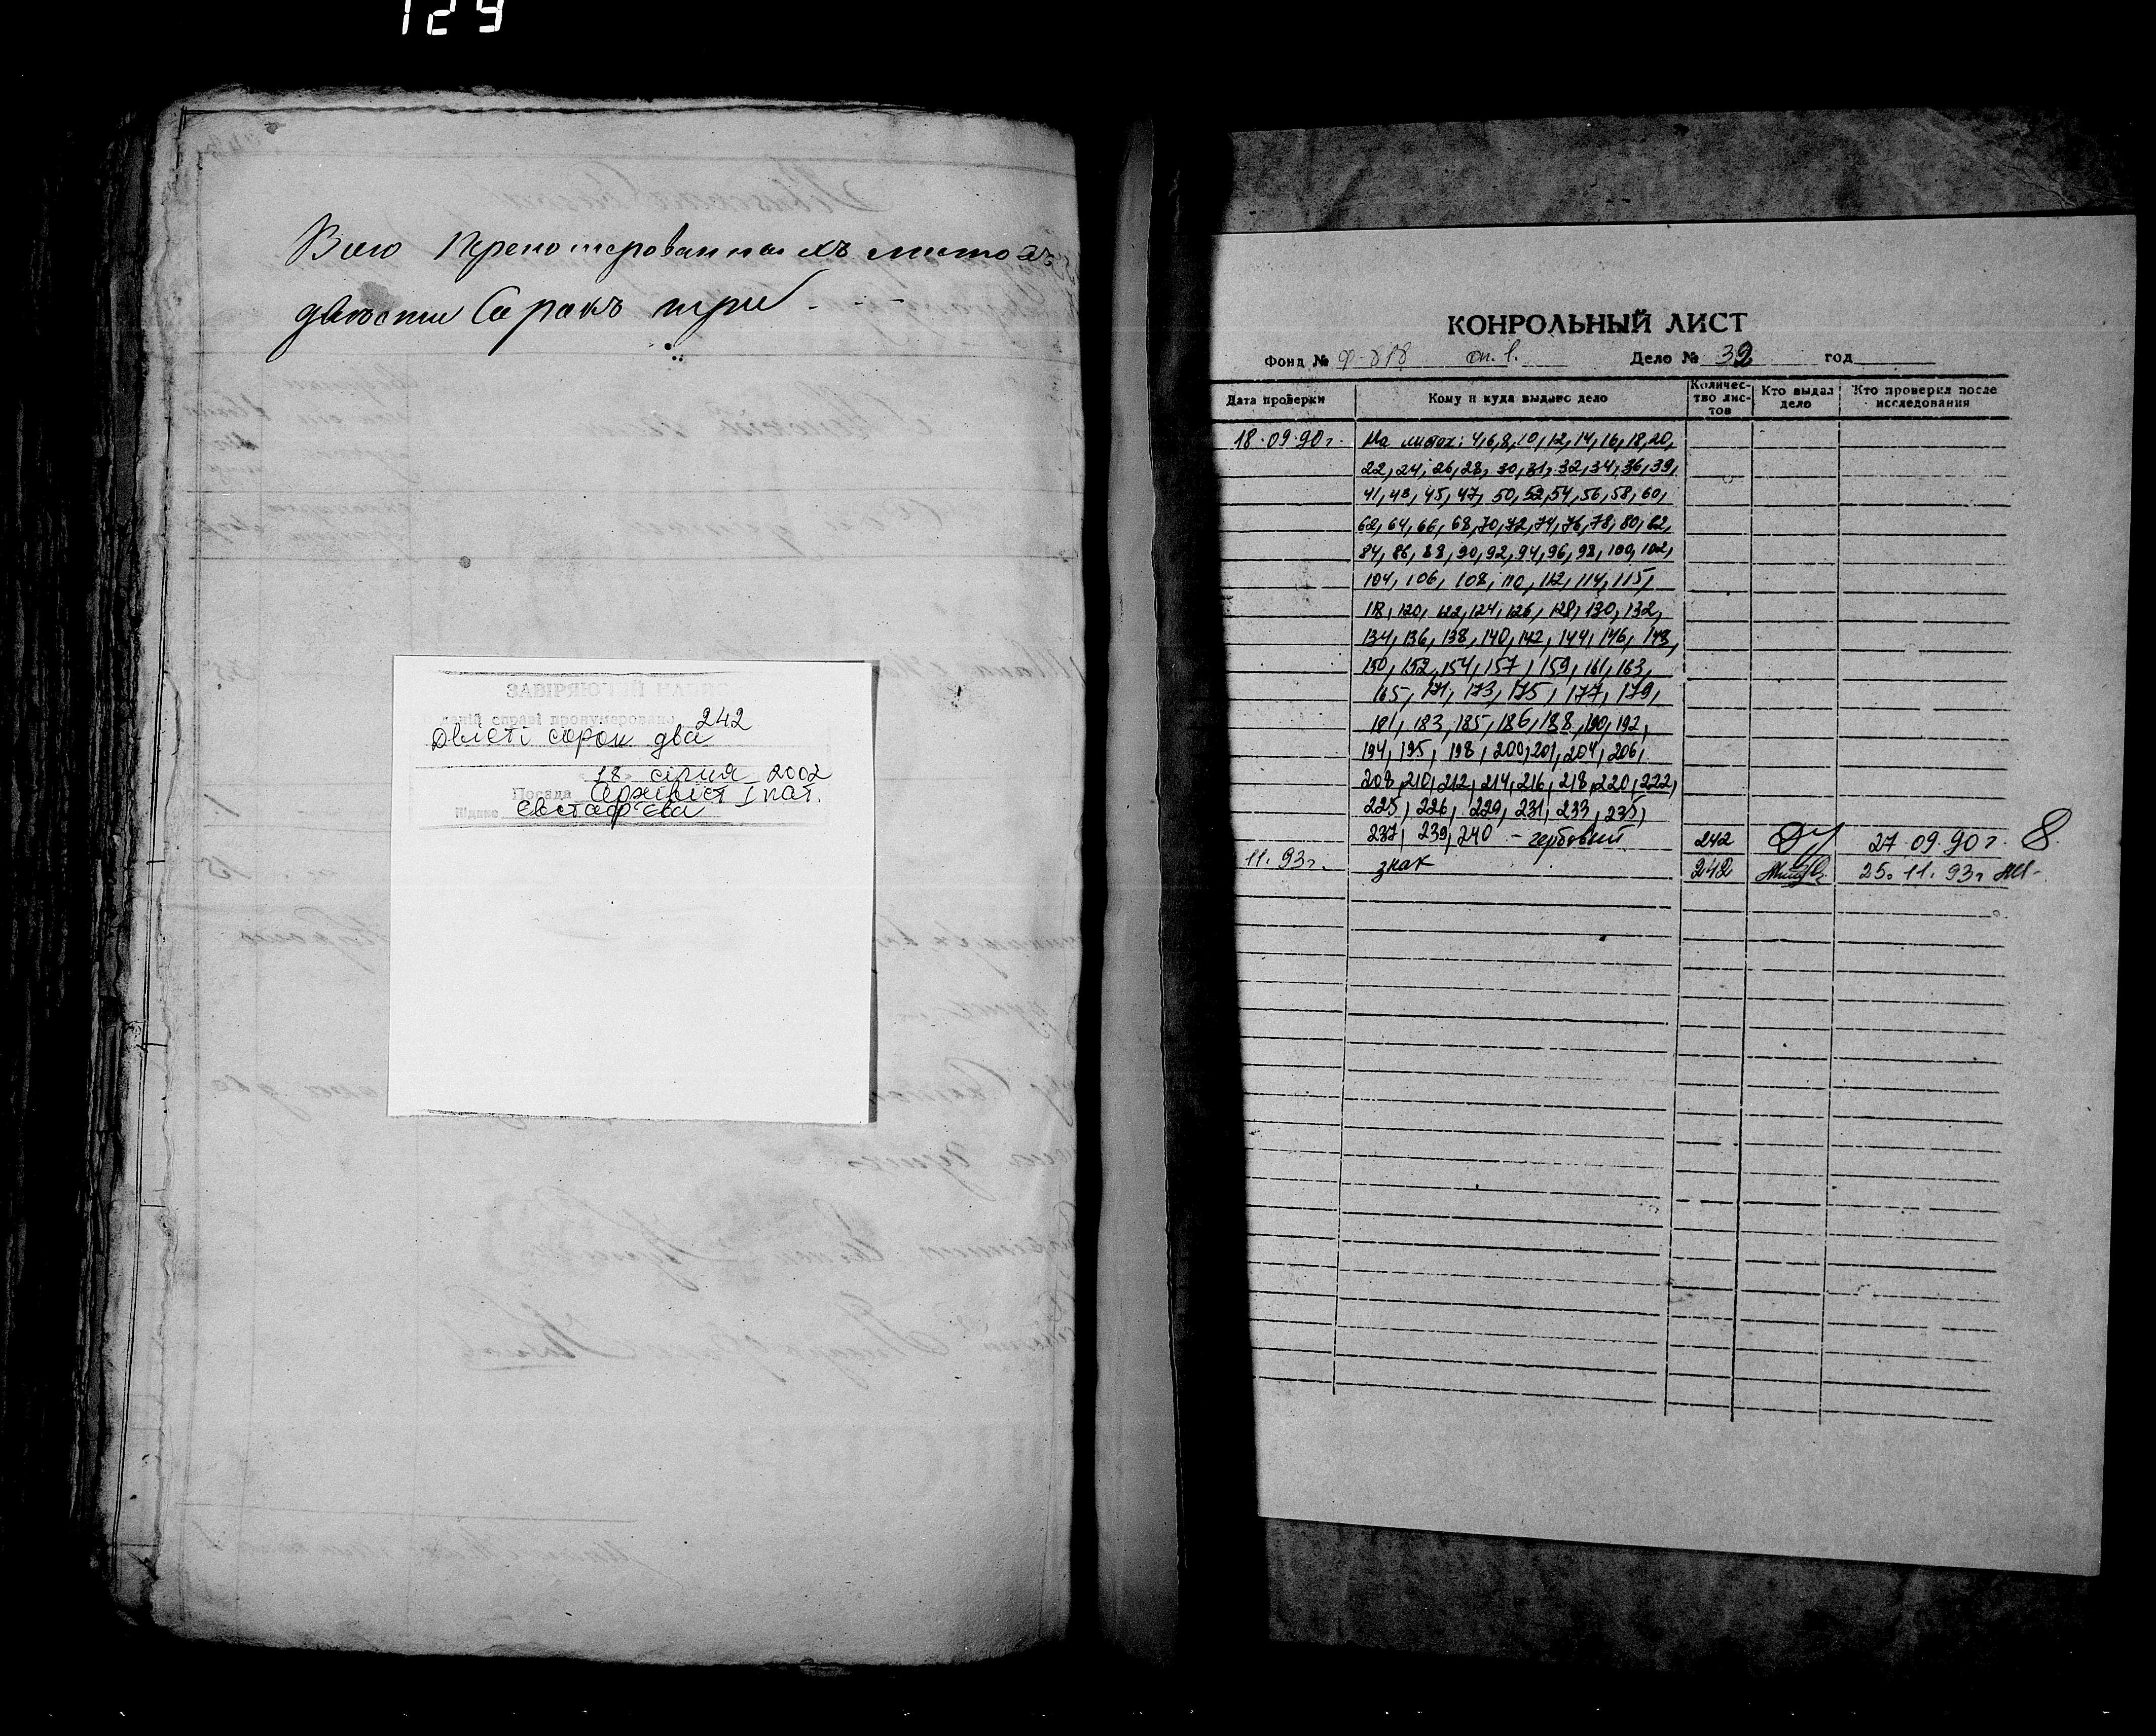 129
Всего Преномерованныхъ листовъ
двѣсти Сорокъ три
ЗАВІРЯЮЧИЙ НАПИС
даній справі пронумеровано 242
Двісті сорок два
18 серпня 2002
Посада Архівіст I кат.
Підпис Євстаф'єва
КОНРОЛЬНЫЙ ЛИСТ
Фонд № Ф-818 оп. 1. Дело № 32 год
Дата проверки Кому и куда выдано дело Количество листов Кто выдал дело Кто проверил после исследования
18.09.90г. На листах: 4,6,8,10,12,14,16,18,20,
22,24,26,28,30,31,32,34,36,39,
41,43,45,47,50,52,54,56,58,60,
62,64,66,68,70,72,74,76,78,80,82,
84,86,88,90,92,94,96,98,100,102,
104,106,108,110,112,114,115,
118,120,122,124,126,128,130,132,
134,136,138,140,142,144,146,148,
150,152,154,157,159,161,163,
165,171,173,175,177,179,
181,183,185,186,188,190,192,
194,195,198,200,201,204,206,
208,210,212,214,216,218,220,222,
225,226,229,231,233,235,
237,239,240 – гербовый 242 27.09.90г.
11.93г. знак 242 25.11.93г